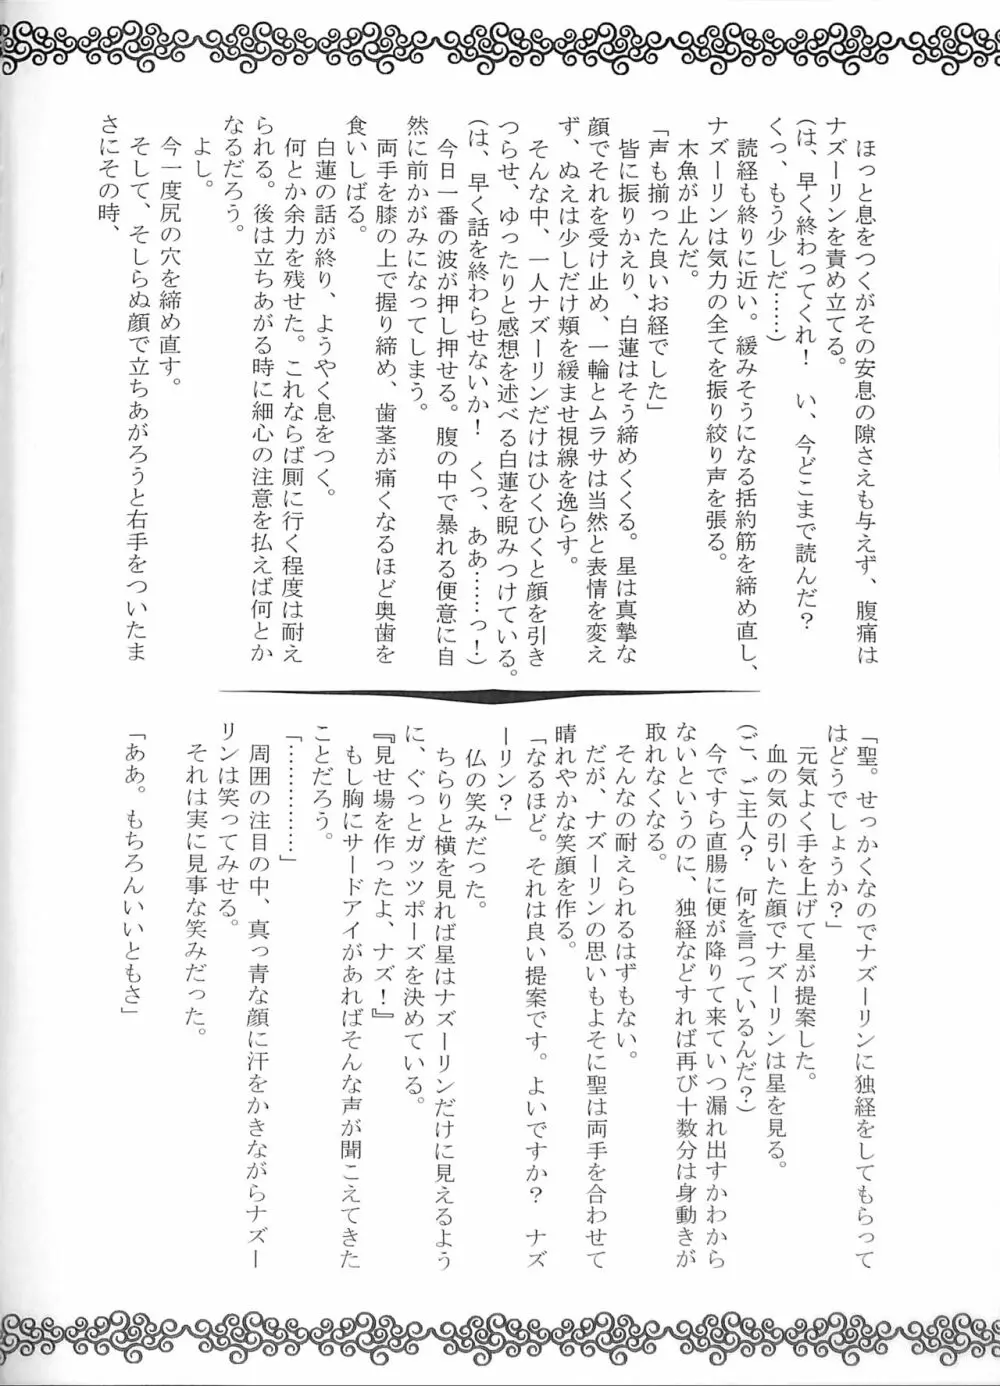 ほっと息をつくがその安息の隙さえも与えず、腹痛は
ナズーリンを責め立てる。
(は、早く終わってくれ！　い、今どこまで読んだ？
くっ、もう少しだ……)
読経も終りに近い。緩みそうになる括約筋を締め直し、
ナズーリンは気力の全てを振り絞り声を張る。
木魚が止んだ。
「声も揃った良いお経でした」
皆に振りかえり、白蓮はそう締めくくる。星は真摯な
顔でそれを受け止め、一輪とムラサは当然と表情を変え
ず、ぬえは少しだけ頬を緩ませ視線を逸らす。
そんな中、一人ナズーリンだけはひくひくと顔を引き
つらせ、ゆったりと感想を述べる白蓮を睨みつけている。
(は、早く話を終わらせないか！　くっ、ああ……っ！)
今日一番の波が押し押せる。腹の中で暴れる便意に自
然に前かがみになってしまう。
両手を膝の上で握り締め、歯茎が痛くなるほど奥歯を
食いしばる。
白蓮の話が終り、ようやく息をつく。
何とか余力を残せた。これならば厠に行く程度は耐え
られる。後は立ちあがる時に細心の注意を払えば何とか
なるだろう。
よし。
今一度尻の穴を締め直す。
そして、そしらぬ顔で立ちあがろうと右手をついたま
さにその時、
「聖。せっかくなのでナズーリンに独経をしてもらって
はどうでしょうか？」
元気よく手を上げて星が提案した。
血の気の引いた顔でナズーリンは星を見る。
(ご、ご主人？　何を言っているんだ？)
今ですら直腸に便が降りて来ていつ漏れ出すかわから
ないというのに、独経などすれば再び十数分は身動きが
取れなくなる。
そんなの耐えられるはずもない。
だが、ナズーリンの思いもよそに聖は両手を合わせて
晴れやかな笑顔を作る。
「なるほど。それは良い提案です。よいですか？　ナズ
ーリン？」
仏の笑みだった。
ちらりと横を見れば星はナズーリンだけに見えるよう
に、ぐっとガッツポーズを決めている。
『見せ場を作ったよ、ナズ！』
もし胸にサードアイがあればそんな声が聞こえてきた
ことだろう。
「……………」
周囲の注目の中、真っ青な顔に汗をかきながらナズー
リンは笑ってみせる。
それは実に見事な笑みだった。
「ああ。もちろんいいともさ」